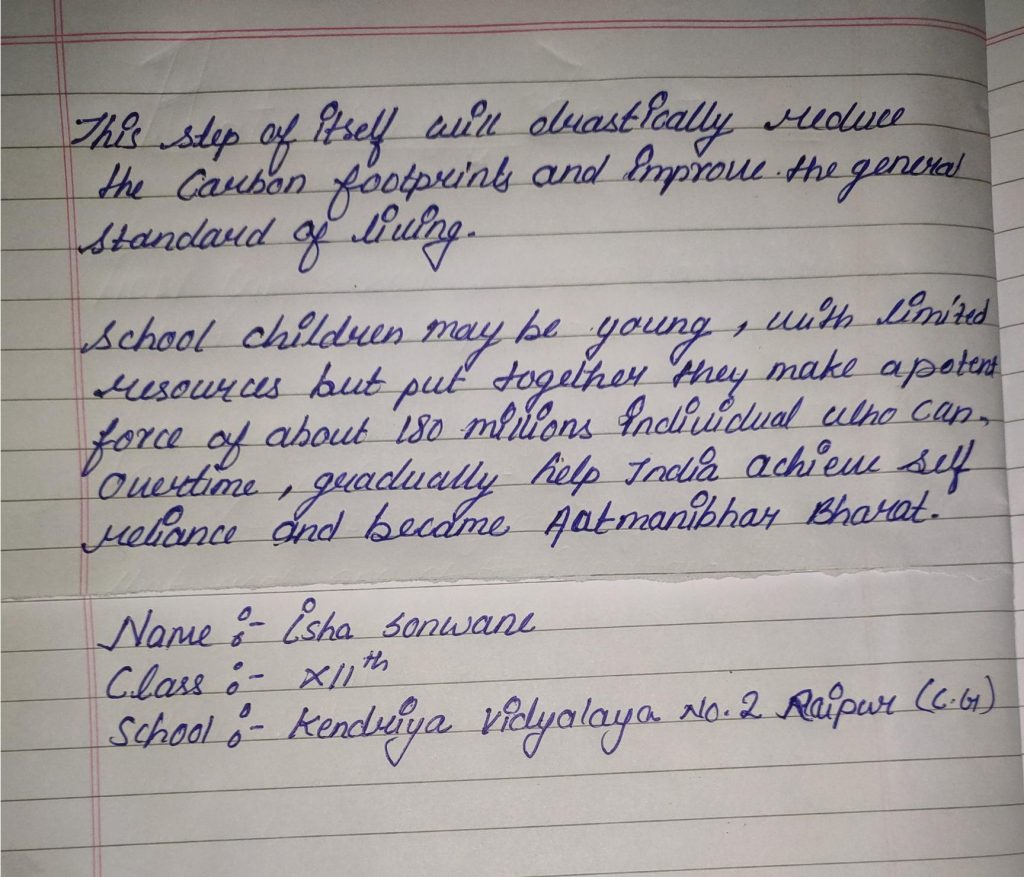 This step of itself will drastically reduce
the Carbon footprints and improve the general
standard of living.
School children may be young, with limited
resources but put together they make a potent
force of about 180 millions individual who can,
Overtime, gradually help India achieve self
reliance and become Aatmanibhar Bharat.
Name :- Isha Sonwane
Class :- XIIth
School :- Kendriya Vidyalaya No. 2 Raipur (C.G)